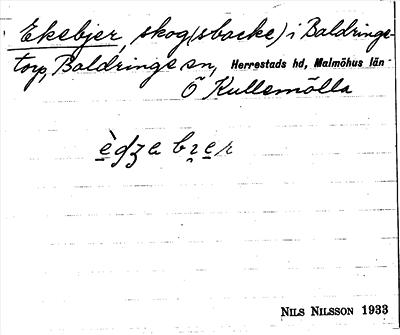 Ekebjer, skog(sbacke) i Baldrings-
torp, Baldrings sn, Herrestads hd, Malmöhus län
Ö Kullsmölla
NILS NILSSON 1933